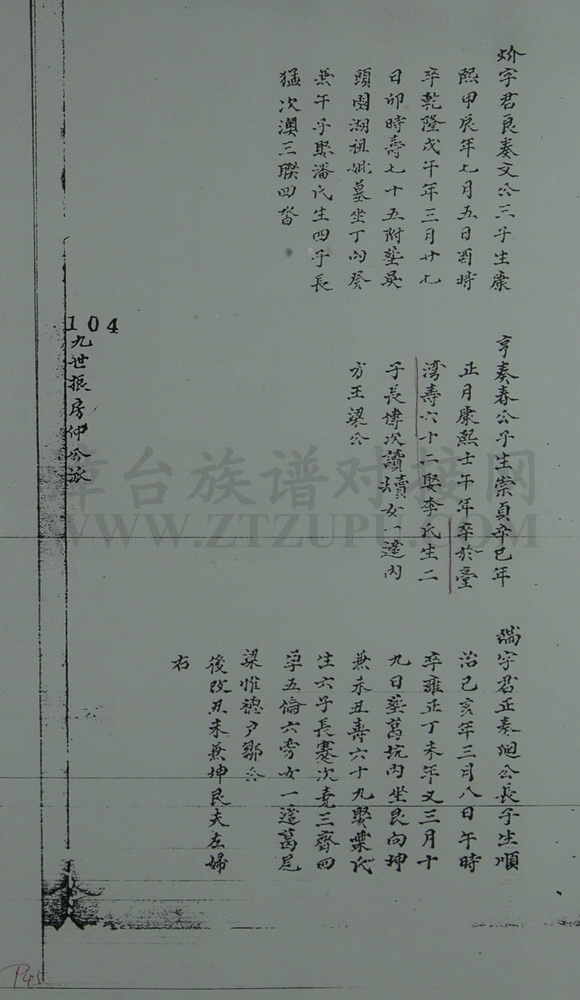 妎字君良奏文公三子生康
熙甲辰年七月五日酉時
卒乾隆戊午年三月廿七
日卯時壽七十五附塟吳
頭園湖祖妣墓坐丁向癸
兼午子娶潘氏生四子長
猛次澳三聯四沓
亨奏春公子生崇貞辛巳年
正月康熙壬午年卒於臺
湾壽六十二娶李氏生二
子長博次讀女一適內
方王梁公
端字君正奏公長子生順
治己亥年三月八日午時
卒雍正丁未年又三月十
九日塟葛坑內坐艮向坤
兼未丑壽六十九娶葉氏
生六子長蹇次堯三齊四
孚五倫六旁女一適葛尾
梁惟德户鄒公
後改丑未兼坤艮夫左婦
右
104
九世振房仲公派
章台族谱对接网
WWW.ZTZUPU.COM
P45